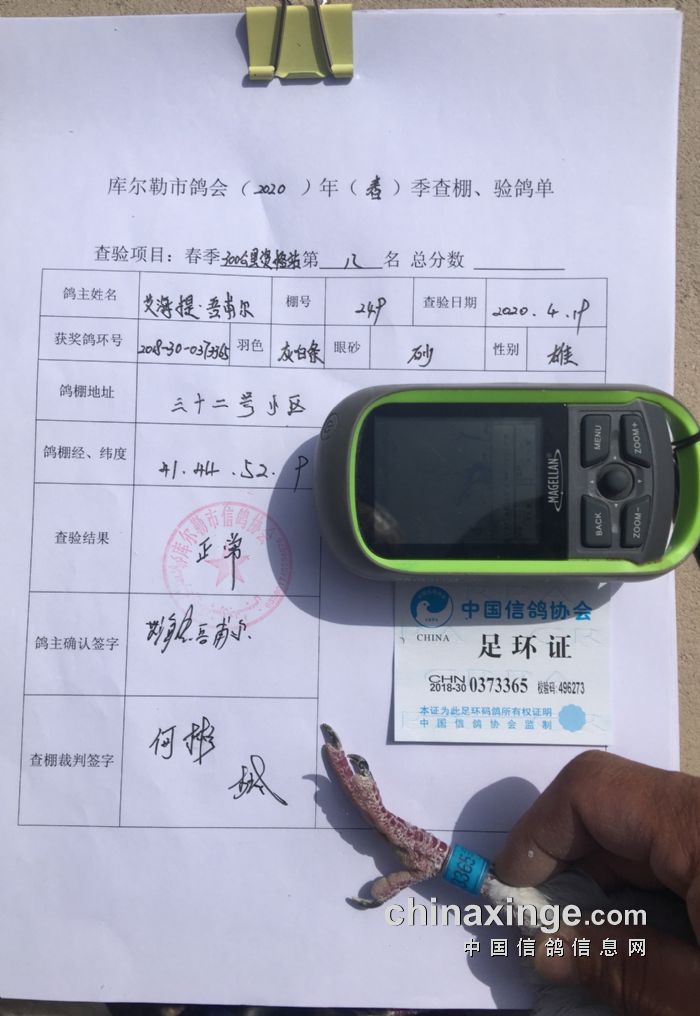 库尔勒市鸽会（2020）年（春）季查棚、验鸽单
查验项目：春季300公里资格站第 八 名 总分数
鸽主姓名 艾海提·吾甫尔 棚号 249 查验日期 2020.4.19
获奖鸽环号 2018-30-0373365 羽色 灰白条 眼砂 砂 性别 雄
鸽棚地址 三十二号小区
鸽棚经、纬度 41.44.52.9
查验结果 正常
库尔勒市信鸽协会
鸽主确认签字 吾甫尔
查棚裁判签字 何彬
MAGELLAN
MENU
ZOOM+
BACK
ZOOM-
中国信鸽协会
CHINA
足环证
CHN
2018-30 0373365 校验码:496273
本证为此足环码鸽所有权证明
中国信鸽协会监制
chinaxinge.com
中国信鸽信息网